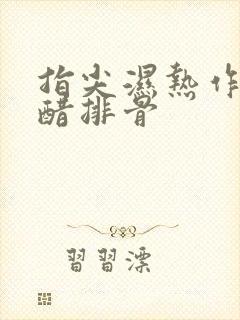 指尖濕熱作
醋排骨
習習漂